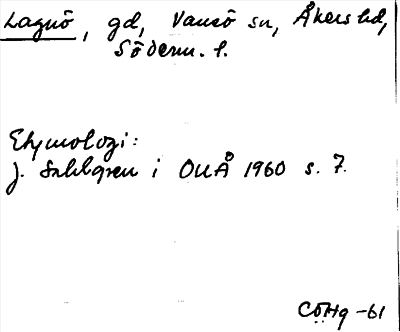 Lagnö, gd, Vansö sn, Åkers hd,
Söderm. l.
Etymologi:
J. Sahlgren i ONÅ 1960 s. 7.
CÖHg -61